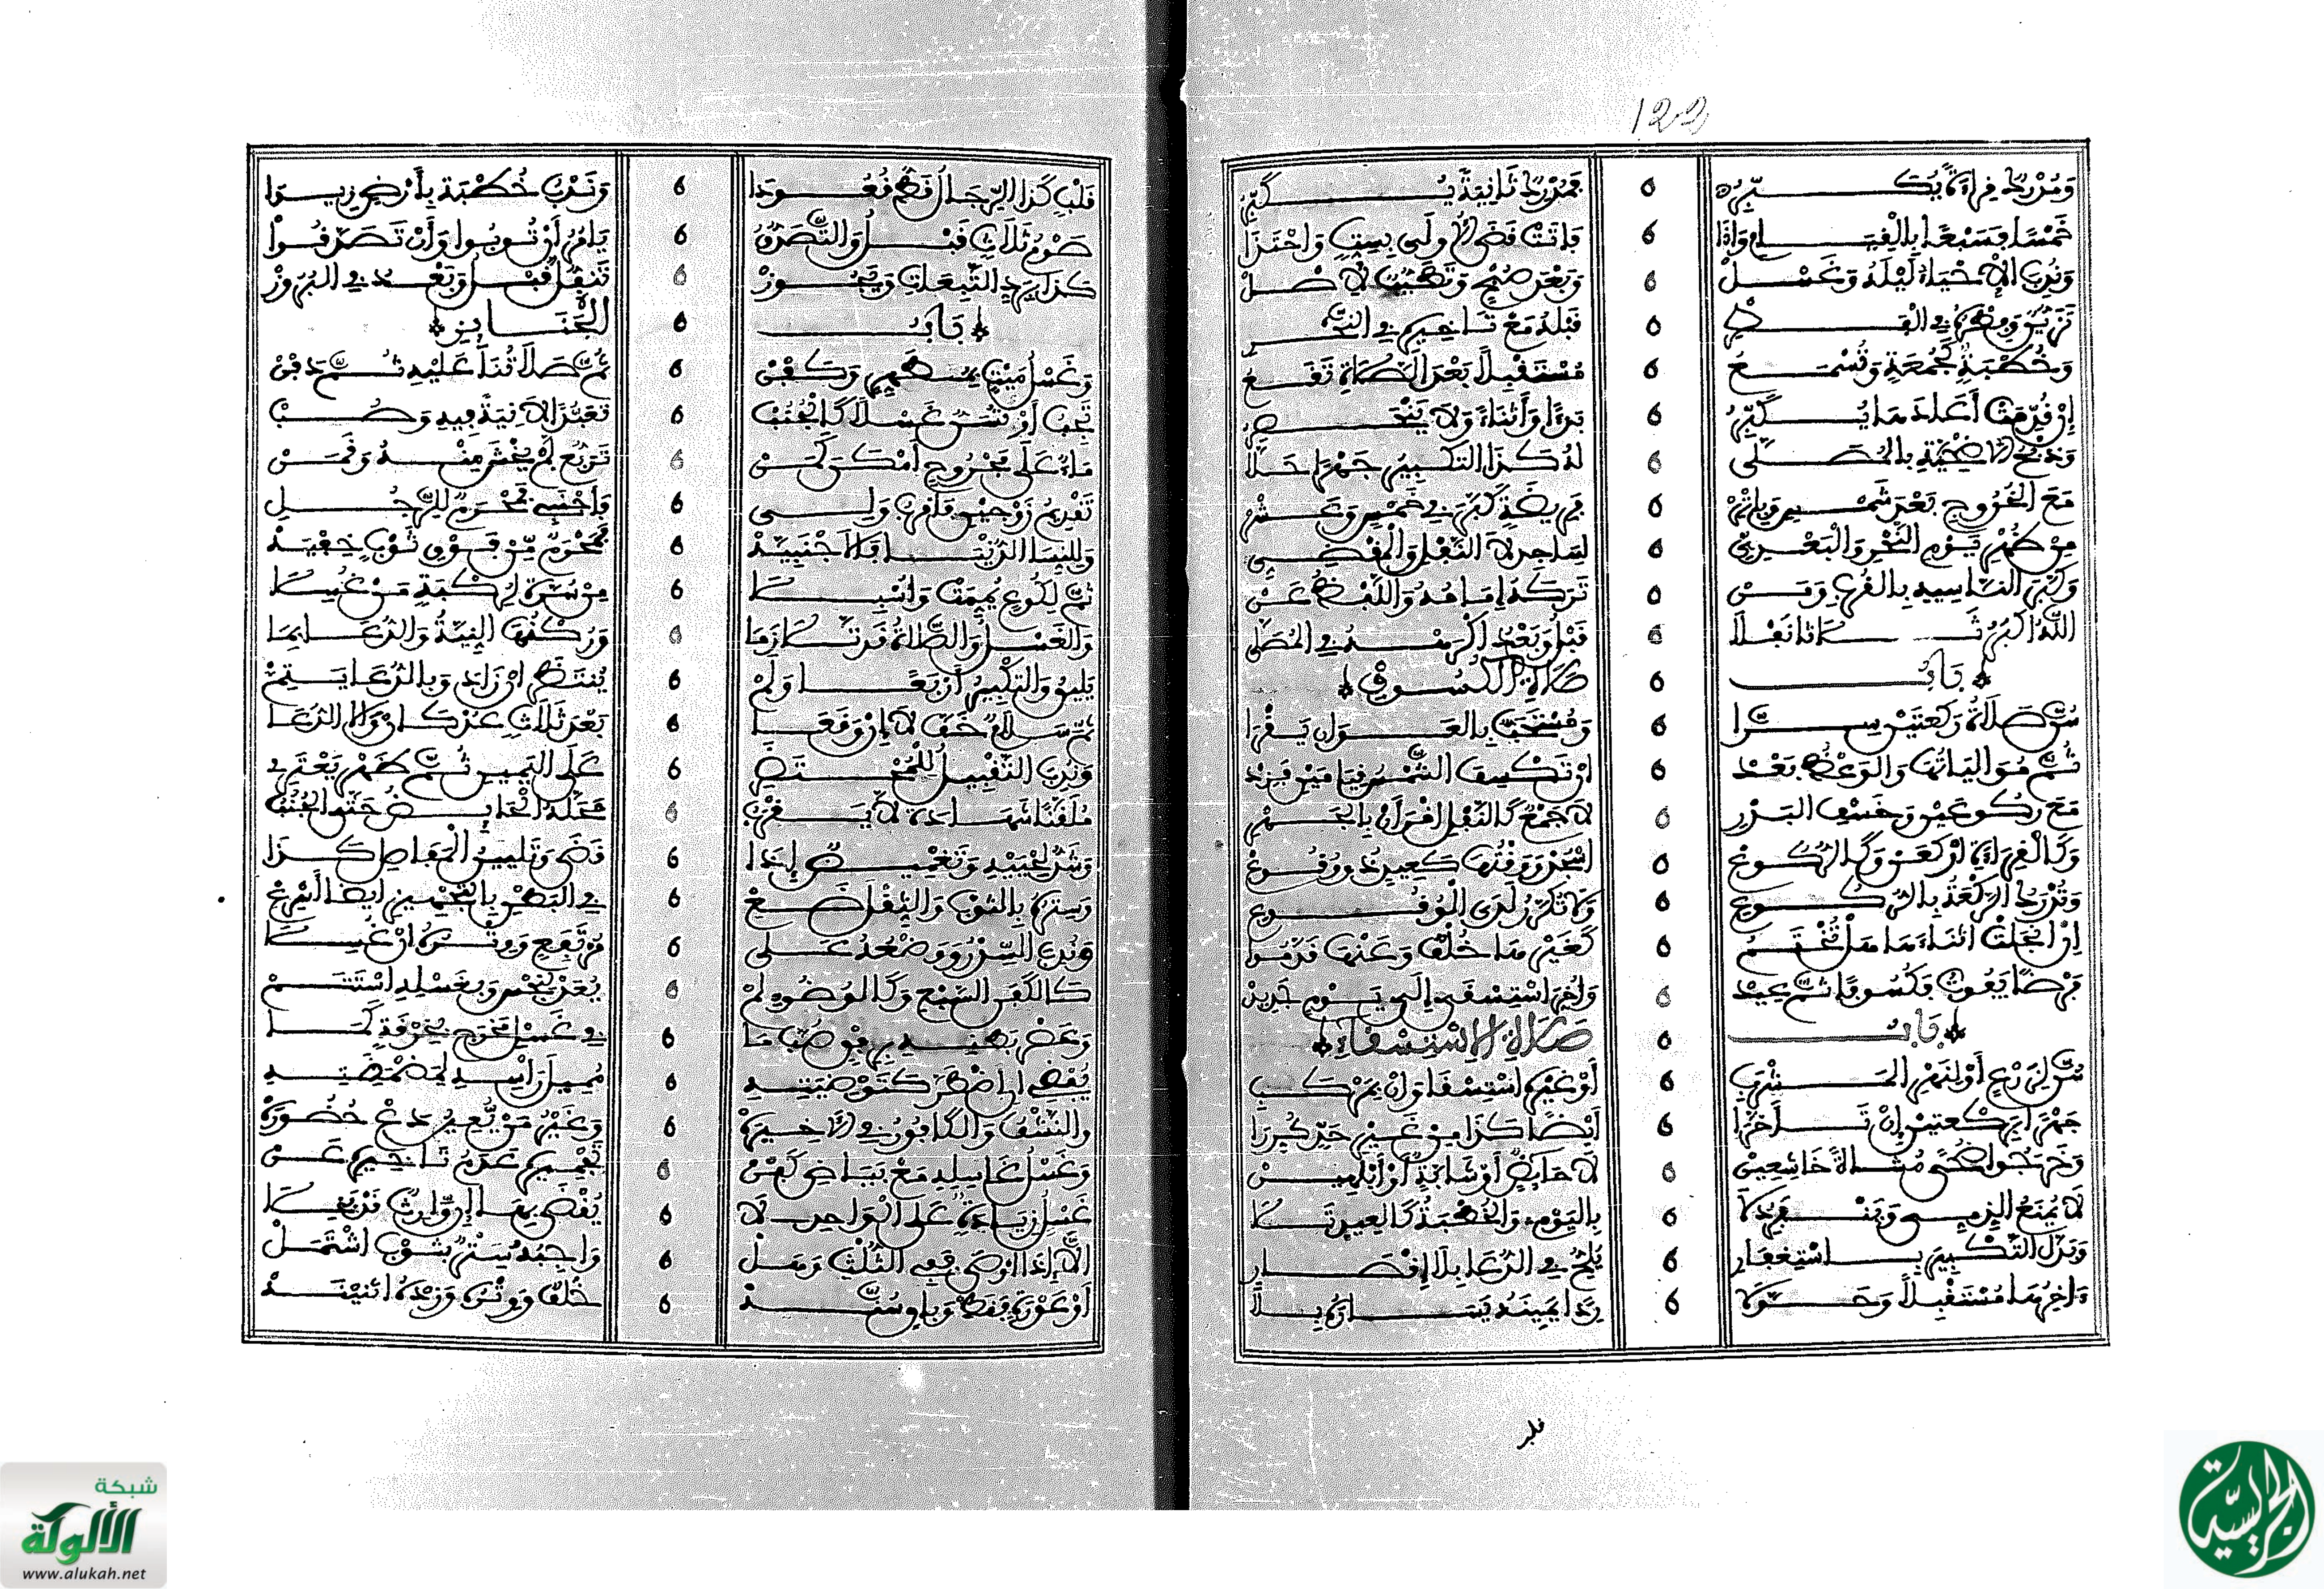 122
وَمُدْرِكٌ قِرَاءَةً يُكَبِّرُ ٥ فَمُدْرِكٌ ثَانِيَةً يُكَبِّرُ
خَمْسًا وَسَبْعًا بِالْقِيَامِ وَإِذَا ٥ فَاتَتْ قَضَى الْأُولَى بِسِتٍّ وَاحْتَذَا
وَنُدِبَ الْإِحْيَاءُ لَيْلَهُ وَغَسْلْ ٥ وَبَعْدَ صُبْحٍ
تَزَيُّنٌ وَفِطْرُهُ فِي الْفِطْرِ ٥ قَبْلَهُ مَعْ تَأْخِيرِهِ فِي النَّحْرِ
وَخُطْبَةٌ كَجُمْعَةٍ وَتُسْمَعُ ٥ مُسْتَقْبِلًا بَعْدَ الصَّلَاةِ تَقَعُ
إِنْ قُدِّمَتْ أَعَادَ مَا يُكَبِّرُ ٥ بَدْءًا وَأَثْنَاءً وَلَا يَنْحَصِرُ
وَذَبْحُ الْأُضْحِيَةِ بِالْمُصَلَّى ٥ لَهُ كَذَا التَّكْبِيرُ جَهْرًا
مَعَ الْخُرُوجِ بَعْدَ شَمْسٍ ٥ فَرِيضَةً كَبَّرَ فِي خَمْسٍ وَعَشْرْ
مِنْ ظُهْرِ يَوْمِ النَّحْرِ وَالْبَعْدِيِّ ٥ لِسَاجِدٍ لَا النَّفْلِ وَالْمَقْضِيِّ
وَكَبَّرَ النَّاسِيهِ بِالْقُرْبِ وَمَنْ ٥ تَرَكَهُ إِمَامُهُ وَاللَّفْظُ عَنْ
اللَّهُ أَكْبَرُ ثَلَاثًا نَفْلَا ٥ قَبْلُ وَبَعْدُ اكْرَهْ فِي الْمُصَلَّى
بَابُ ٥ صَلَاةِ الْكُسُوفِ
سُنَّ صَلَاةُ رَكْعَتَيْنِ سِرَّا ٥ وَمُسْتَحَبٌّ بِالْعَوَانِ يَقْرَا
ثُمَّ مُوَالِيَاتُهَا وَالْوَعْظُ بَعْدْ ٥ إِنْ تَكْسِفِ الشَّمْسُ
مَعَ رُكُوعَيْنِ وَخَسْفِ الْبَدْرِ ٥ لَا جَمْعَ كَالنَّفْلِ اقْرَأَنْ بِالْجَهْرِ
وَكَالْقِرَاءَةِ ارْكَعَنْ وَكَالرُّكُوعْ ٥ اسْجُدْ وَوَقْتُهَا كَعِيدٍ
وَتُدْرَكُ الرَّكْعَةُ بِالرُّكُوعِ ٥ وَلَا تُكَرَّرْ لَدَى الْوُقُوعِ
إِنِ انْجَلَتْ أَثْنَاءَهَا هَلْ تُخْتَتَمُ ٥ كَغَيْرِهَا خُلْفٌ وَعَنْهَا قَدَّمُوا
فَرْضًا يَفُوتُ فَكُسُوفًا ثُمَّ عِيدْ ٥ وَأُخِّرَ اسْتِسْقًا إِلَى يَوْمٍ جَدِيدْ
بَابُ ٥ صَلَاةِ الِاسْتِسْقَاءِ
سُنَّ لِزَرْعٍ أَوْ لِشُرْبِ ٥ أَوْ غَيْرِهِ اسْتِسْقَا وَإِنْ بِمَرْكَبِ
جَهْرًا بِرَكْعَتَيْنِ إِنْ تَأَخَّرَا ٥ أَيْضًا كَذَا مِنْ غَيْرِ حَدٍّ كُرِّرَا
وَخَرَجُوا ضُحًى مُشَاةً خَاشِعِينْ ٥ لَا حَائِضٌ أَوْ شَابَّةٌ
لَا يُمْنَعُ الذِّمِّي وَيَنْفَرِدْ لَا ٥ بِالْيَوْمِ وَالْخُطْبَةُ كَالْعِيدِ
وَبَدَلَ التَّكْبِيرِ بِاسْتِغْفَارِ ٥ يُلِحُّ فِي الدُّعَا بِلَا اقْتِصَارِ
وَاخِرَهَا مُسْتَقْبِلًا وَحَوَّلَا ٥ رِدًا يَمِينَهُ يَسَارَهُ بِلَا
قلب
قَلْبٍ كَذَا الرِّجَالُ فَهُمْ قُعُودَا ٥ وَنَدْبُ خُطْبَةٍ بِأَرْضٍ زِيدَا
صَوْمُ ثَلَاثٍ قَبْلُ وَالتَّصَدُّقُ ٥ يَامُرُ أَنْ تُوبُوا وَأَنْ تَصَدَّقُوا
كَذَا بِرَدِّ التَّبِعَاتِ وَيَجُوزْ ٥ تَنَفُّلٌ قَبْلُ وَبَعْدُ فِي الْبُرُوزْ
بَابُ ٥ الْجَنَائِزِ
وَغَسْلُ مَيْتٍ بِمُطَهِّرٍ وَكَفَنْ ٥ ثُمَّ صَلَاتُنَا عَلَيْهِ ثُمَّ دَفْنْ
تَجِبُ أَوْ تُسَنُّ غَسْلًا كَالْجُنُبْ ٥ تَعَبُّدًا لَا نِيَّةٌ فِيهِ وَصُبْ
مَاءٌ عَلَى مَجْرُوحٍ أَمْكَنَ كَمَنْ ٥ تَقَطُّعٌ لَمْ يُخْشَ مِنْهُ وَقَمَنْ
تَقْدِيمُ زَوْجَيْنِ فَأَقْرَبِ وَلِي ٥ فَأَجْنَبِي فَمَحْرَمٌ لِلرَّجُلِ
وَلِلنِّسَا الدُّنْيَا فَلِأَجْنَبِيَّهْ ٥ فَمَحْرَمٌ مِنْ فَوْقِ ثَوْبٍ
ثُمَّ لِكُوعٍ يُمِّمَتْ ٥ مِنْ سُرَّةٍ لِرُكْبَةٍ مَنْ غُسِلَا
وَالْغَسْلُ وَالصَّلَاةُ قَدْ تَلَازَمَا ٥ وَرُكْنُهَا النِّيَّةُ وَالدُّعَا بِمَا
يَلِيقُ وَالتَّكْبِيرُ أَرْبَعًا وَلَمْ ٥ يُنْتَظَرْ إِنْ زَادَ وَبِالدُّعَا يَتِمْ
ثُمَّ سَلَامٌ خَفَّ لَا إِنْ وَقَعَا ٥ بَعْدَ ثَلَاثٍ وَالَى الدُّعَا
وَنُدِبَ التَّقْبِيلُ لِلْمُحْتَضَرِ ٥ عَلَى الْيَمِينِ ثُمَّ ظَهْرٍ
مُلَقَّنًا شَهَادَةً لَا يَقْرُبُ ٥ مَحَلَّهُ الْحَائِضُ حَتَّى الْجُنُبُ
وَشَدُّ لَحْيَيْهِ وَتَغْمِيضٌ إِذَا ٥ قَضَى وَتَلْيِينُ الْمَفَاصِلِ كَذَا
وَسِتْرُهُ بِالثَّوْبِ وَالثِّقْلَ ضَعْ ٥ فِي الْبَطْنِ بِالتَّجْهِيزِ أَيْضًا أَسْرِعْ
وَنُدِبَ السِّدْرُ وَوَضْعُهُ عَلَى ٥ مُرْتَفِعٍ وَوِتْرُهُ إِنْ غُسِلَا
كَالْكَفَنِ السَّبْعِ وَكَالْوُضُوءِ لَمْ ٥ يُعَدْ بِنَجْسٍ وَبِغَسْلِهِ
وَعَصْرُ بَطْنِهِ بِرِفْقٍ صُبَّ مَا ٥ فِي غَسْلِ مَخْرَجٍ بِخِرْقَةٍ كَمَا
يُفْضِي إِنِ اضْطُرَّ كَتَوْضِيَتِهِ ٥ مُمِيلَ رَأْسِهِ لِمَضْمَضَتِهِ
وَالنَّشْفُ وَالْكَافُورُ فِي الْأَخِيرَهْ ٥ وَغَيْرُ مَنْ يُعِينُ دَعْ حُضُورَهْ
وَغَسْلُ غَاسِلِهِ مَعْ بَيَاضِ كَفَنْ ٥ تَجْمِيرُهُ عَدَمُ تَأْخِيرِهِ عَنْ
غَسْلٍ زِيَادَةٌ عَلَى الْوَاحِدِ لَا ٥ يُقْضَى بِهَا
إِلَّا إِذَا أَوْصَى فَفِي الثُّلْثِ وَهَلْ ٥ وَاجِبُهُ سَتْرٌ بِثَوْبٍ اشْتَمَلْ
أَوْ عَوْرَةٍ فَقَطْ وَبَاقٍ سُنَّهْ ٥ خُلْفٌ وَوِتْرُهُ
شبكة
الألوكة
www.alukah.net